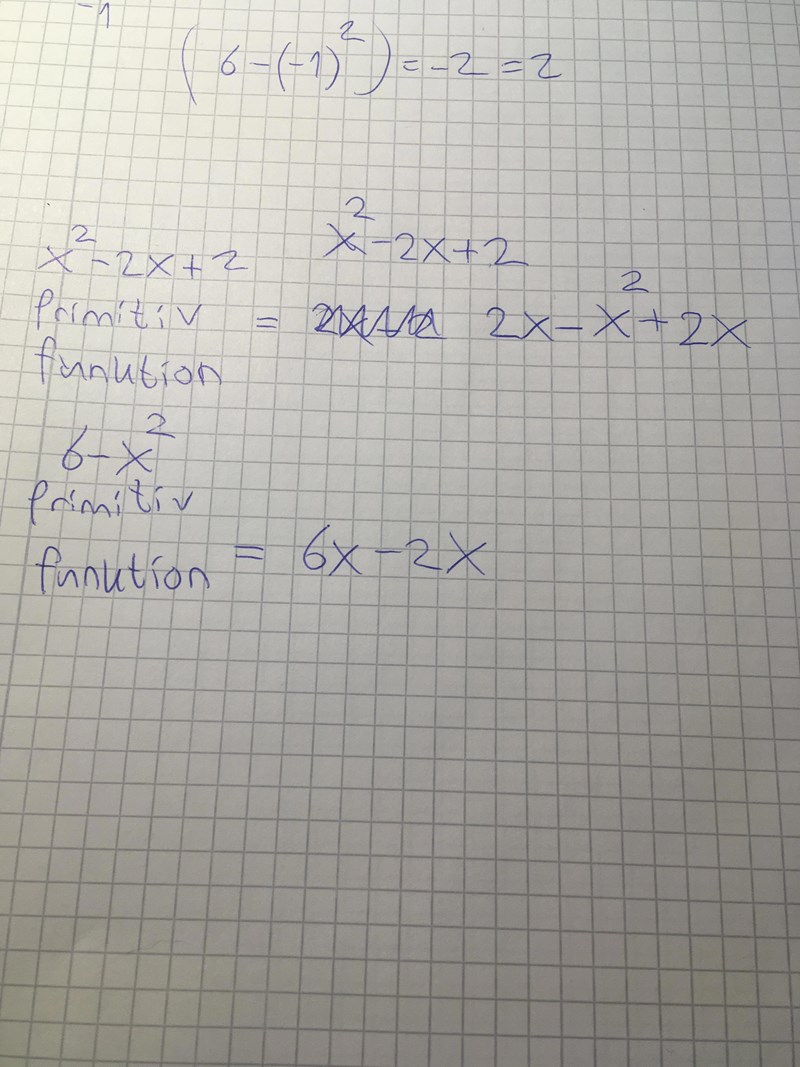 -1
(6-(-1)²)=-2=2
x²-2x+2
x²-2x+2
Primitiv = 2x-x²+2x
funktion
6-x²
Primitiv
funktion = 6x-2x